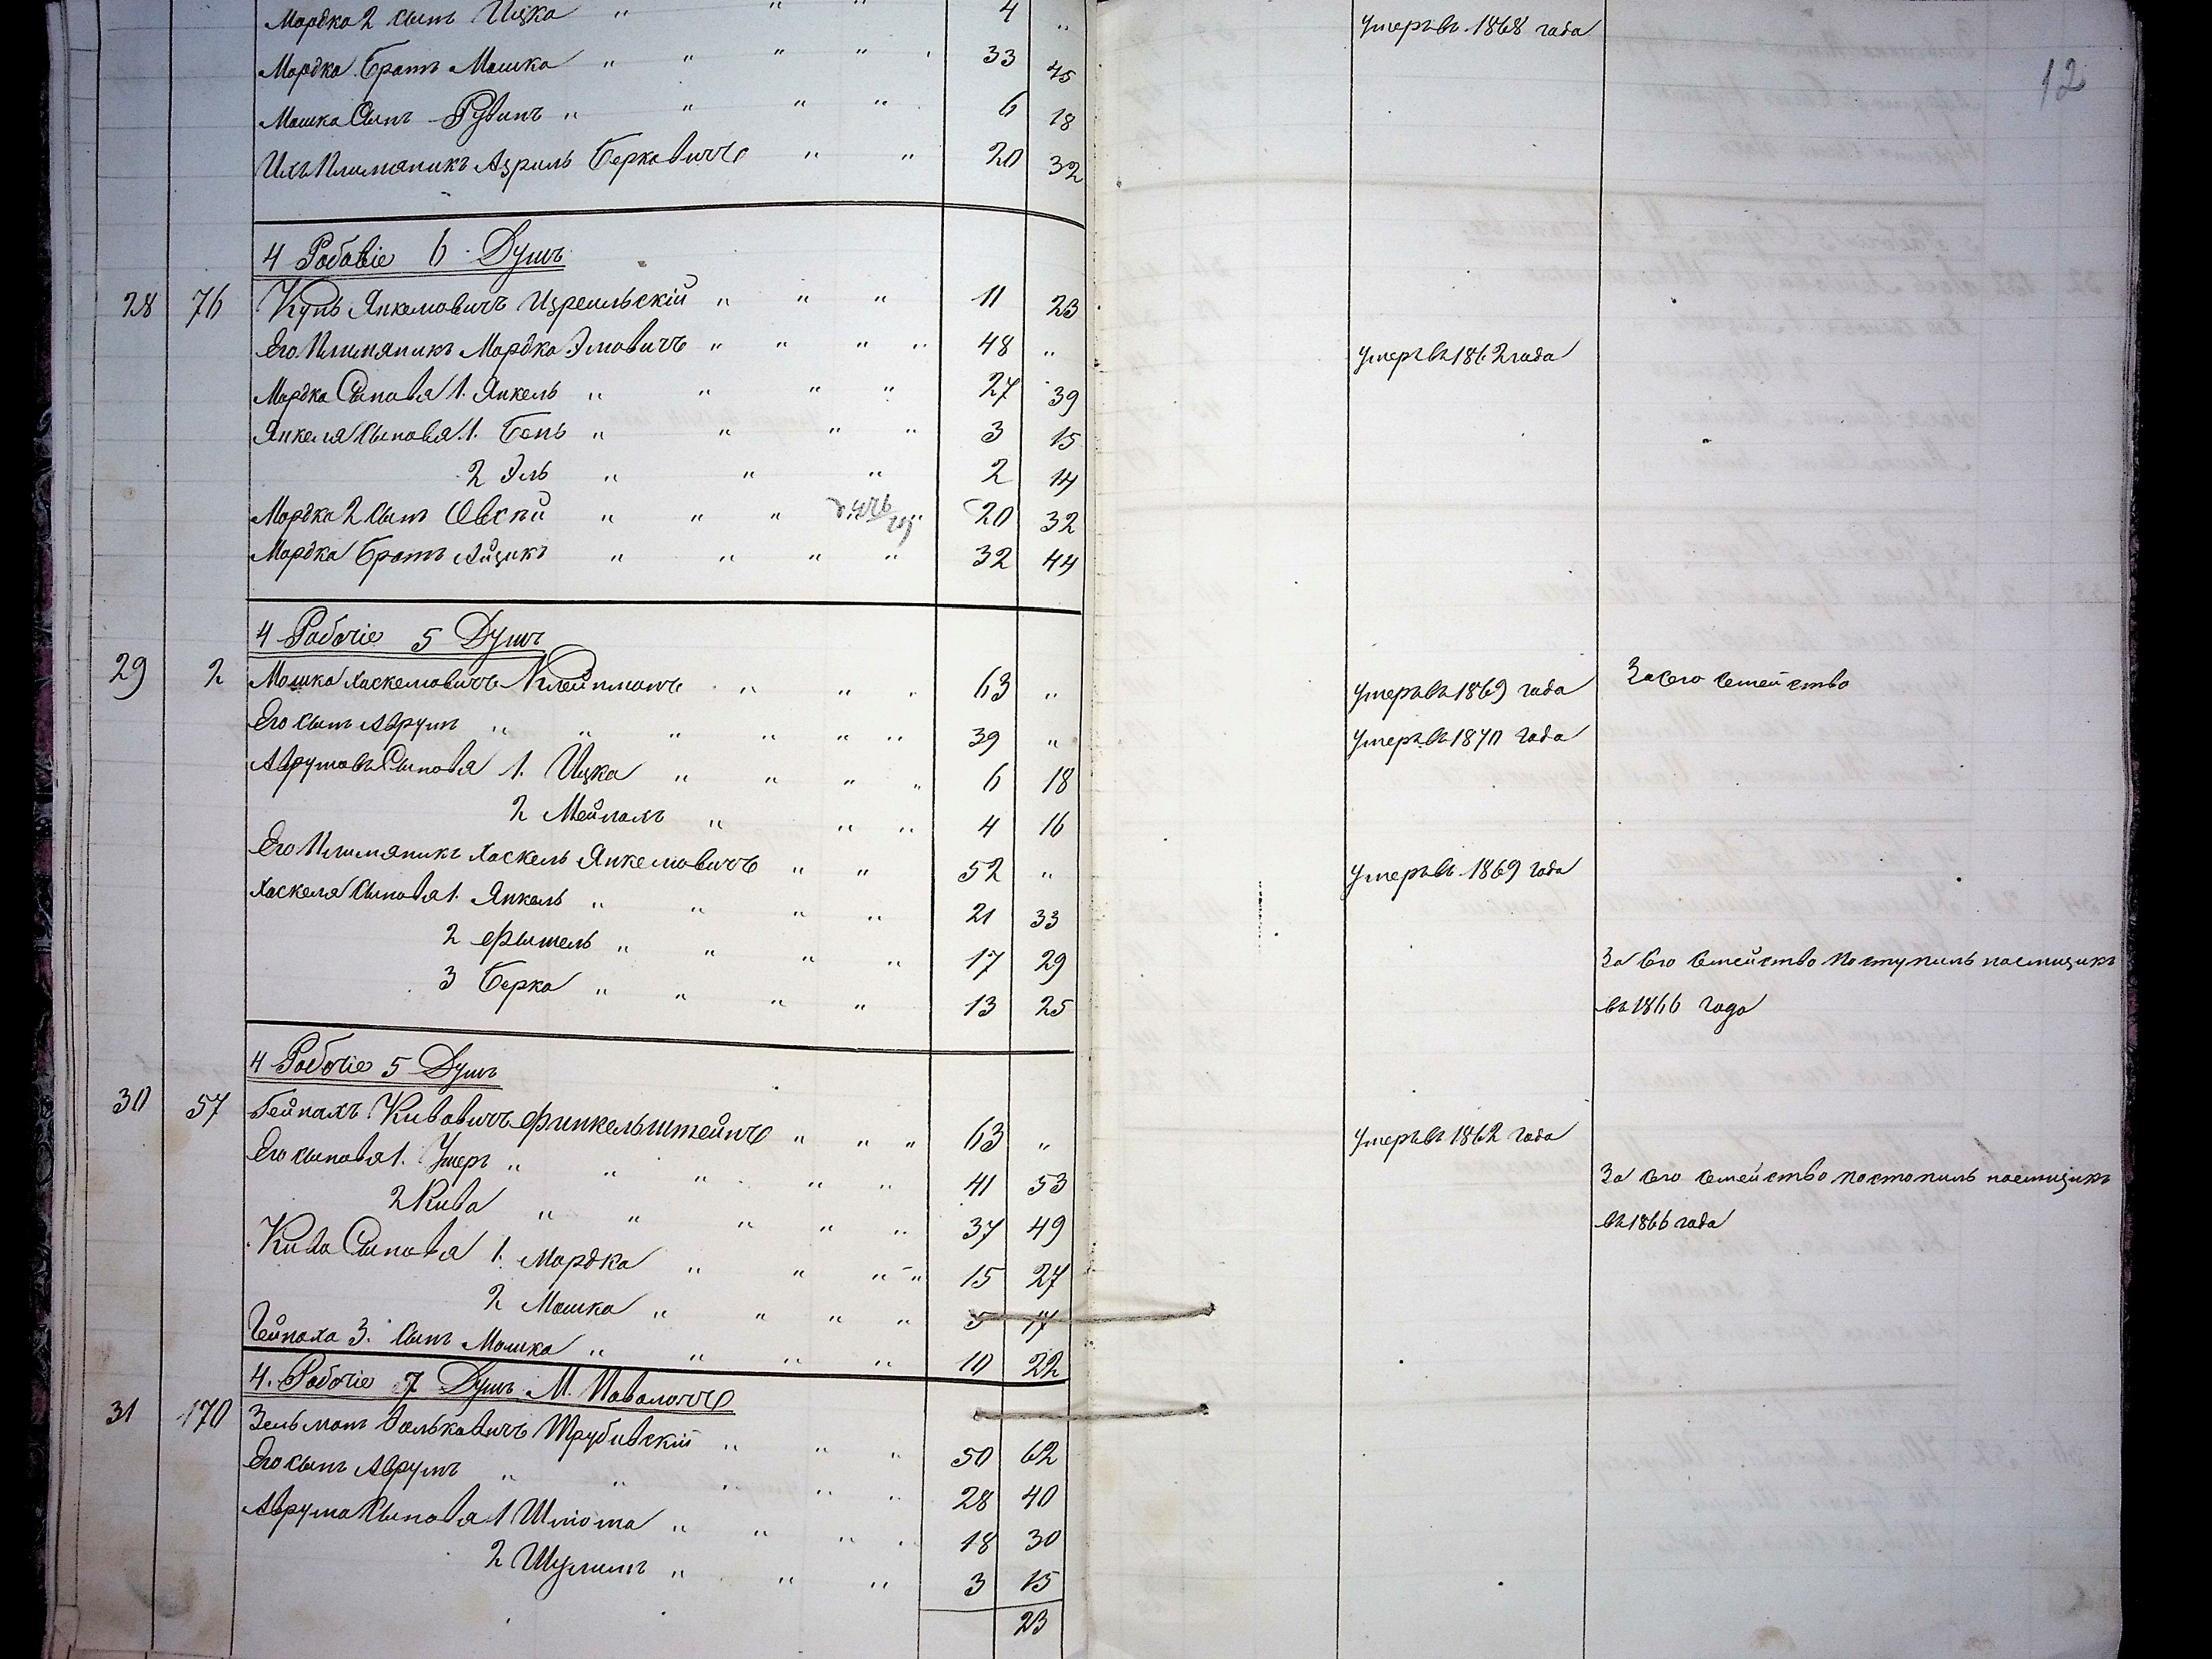 Мордка 2 сынъ Ицка " " " 4 " умеръ въ 1868 года
12
Мордка Братъ Мошка " " " " 33 45
Мошка Сынъ Рувинъ " " " " 6 18
Ихъ Плимяникъ Азриль Берковичъ " " 20 32
4 Робовіе 6 Душъ
28 76 Кунь Янкелювичъ Изреильскій " " " 11 23
Его Плимяникъ Мордко Элювичъ " " " " 48 " умеръ въ 1862 года
Мордка Сыновья 1. Янкель " " " " 27 39
Янкеля Сыновья 1. Бень " " " " 3 15
2 Эль " " " 2 14
Мордка 2 Сынъ Овсѣй " " " 20 32
Мордка Братъ Айзикъ " " " " 32 44
4 Робочіе 5 Душъ
29 2 Мошка Хаскелювичъ Клейнманъ " " " 63 " умеръ въ 1869 года За его семейство
Его сынъ Аврумъ " " " " " " 39 " умеръ въ 1870 года
Аврумовы Сыновья 1. Ицка " " " " 6 18
2 Мейнахъ " " " 4 16
Его Плимяникъ Хаскель Янкелювичъ " " 52 " умеръ въ 1869 года
Хаскеля Сыновья 1. Янкель " " " " 21 33
2 Фишель " " " " 17 29 За его Семейство поступилъ наемщикъ
3 Берко " " " " 13 25 въ 1866 года
4 Робочіе 5 Душъ
30 57 Гейнахъ Кивовичъ Финкельштейнъ " " " 63 " умеръ въ 1862 года
Его сыновья 1. Ушеръ " " " " " 41 53 За его Семейство постопилъ наемщикъ
2 Кива " " " " " 37 49 въ 1866 года
Кива Сыновья 1. Мордка " " " " 15 27
2 Мошка " " " " 5 17
Гейноха 3. Сынъ Мошка " " " " 10 22
4. Робочіе 7 Душъ М. Паволочъ
31 170 Зельманъ Вольковичъ Трубивскій " " " 50 62
Его сынъ Аврумъ " " " " " 28 40
Аврума Сыновья 1 Шлиома " " " " 18 30
2 Шулимъ " " " 3 15
23